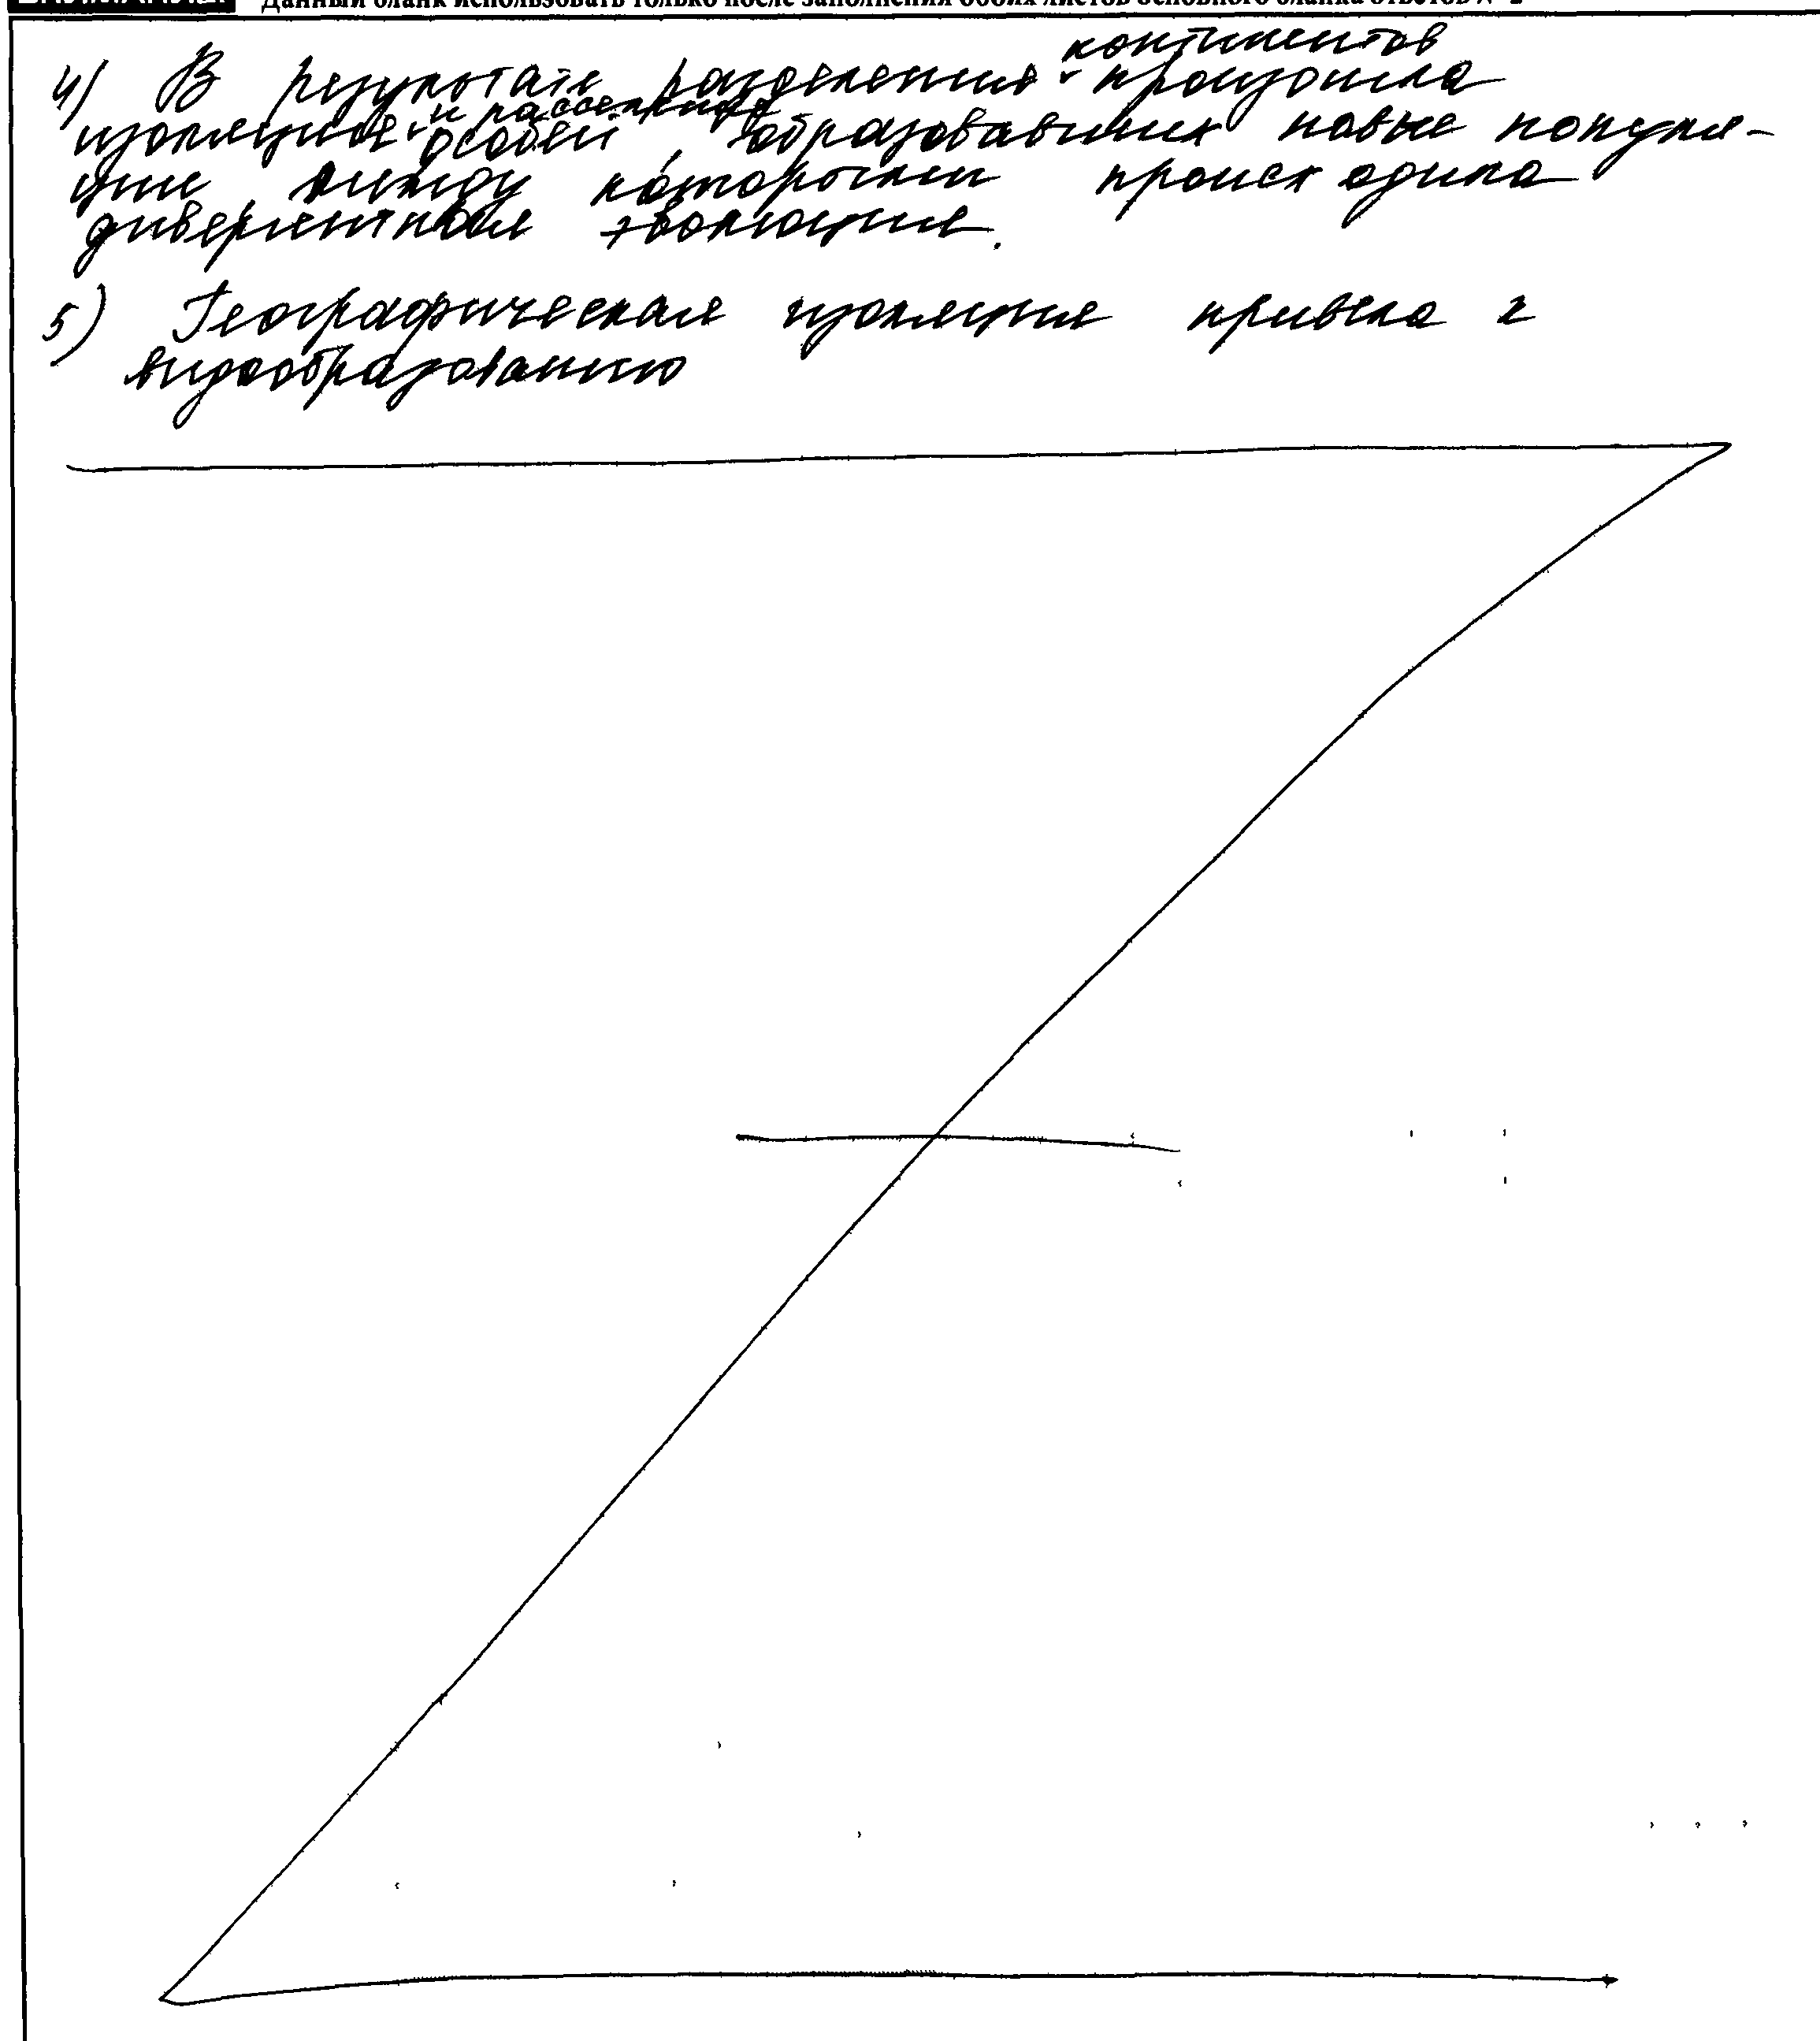 Данный бланк использовать только после заполнения обоих листов основного бланка ответов № 2
4) В результате разделения континентов произошла
изоляция и расселение особей, образовавших новые популя-
ции, между которыми происходила
дивергентная эволюция.
5) Географическая изоляция привела к
видообразованию